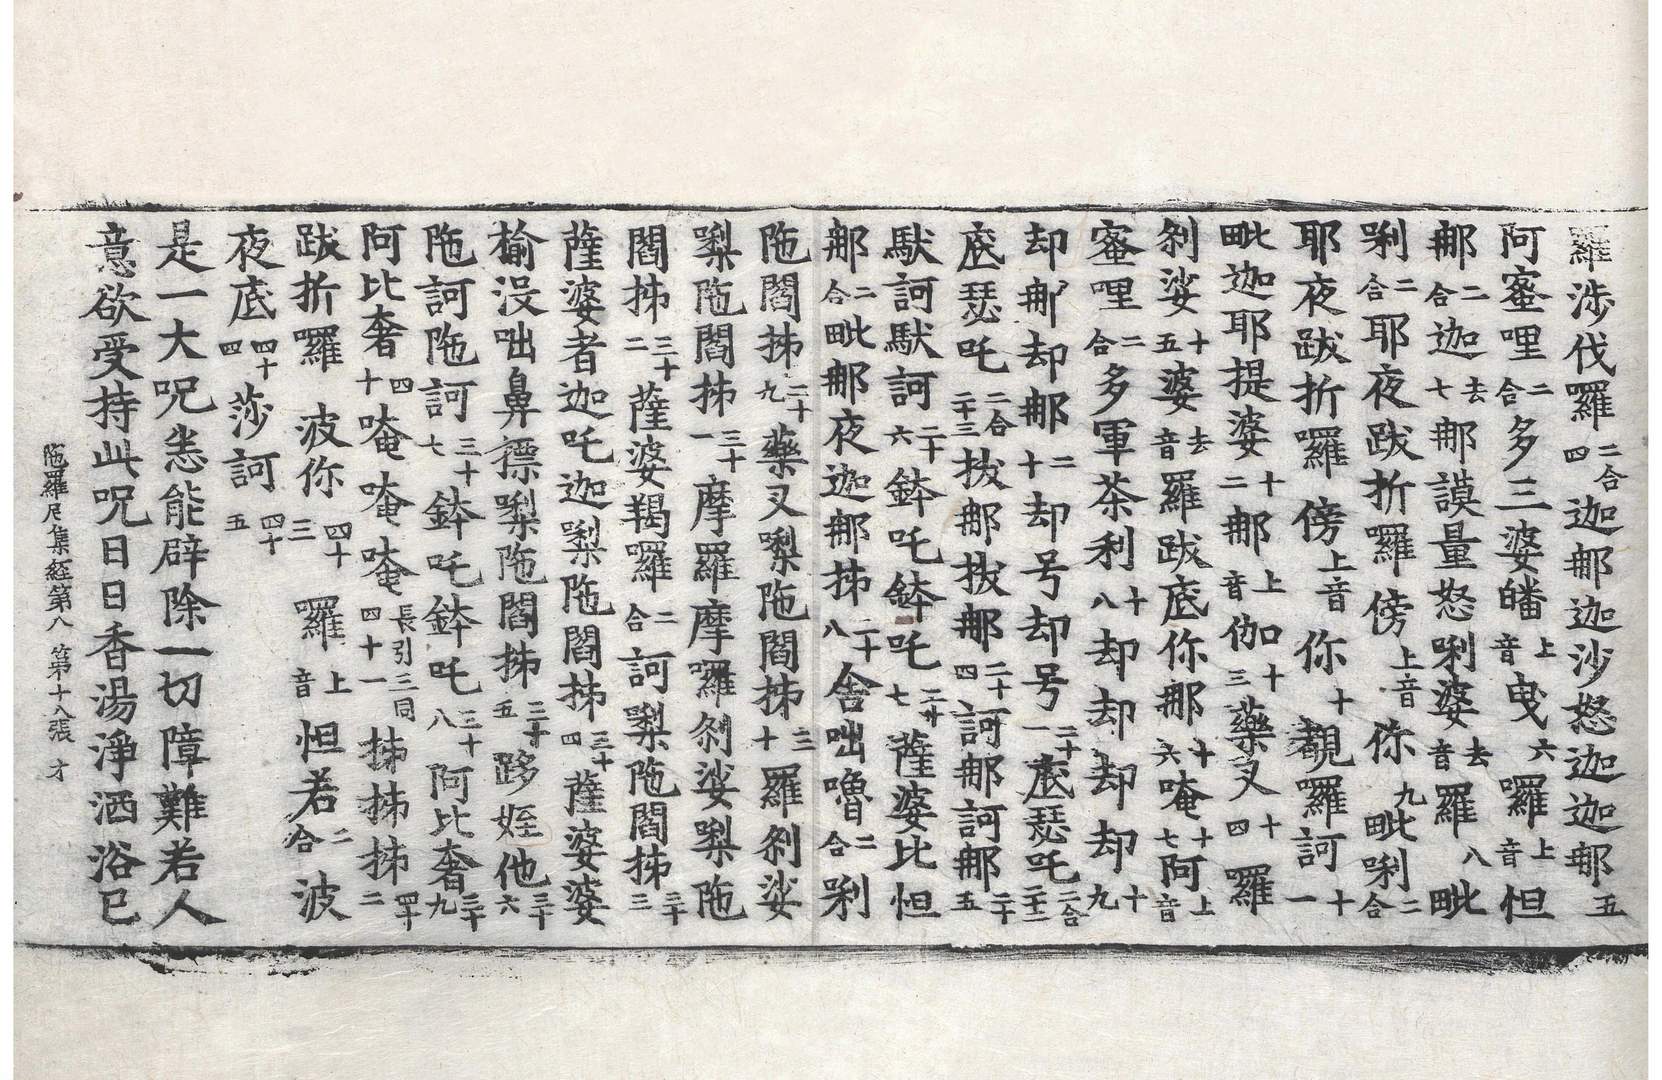 羅涉伐囉二合四迦那迦沙怒迦迦那五
阿蜜哩二合多三婆皤上音曳六囉上音怛
那二合迦去七那謨量怒唎婆去音羅八毗
唎二合耶夜跋折囉傍上音你九毗唎二合
耶夜跋折囉傍上音你十覩羅訶十一
毗迦耶提婆十二那上音伽十三藥叉十四羅
剎娑十五婆去音羅跋底你那十六唵十七阿上音
蜜哩二合多軍茶利十八却却却却十九
却那却那二十却号却号二十一底瑟吒二合二十二
底瑟吒二合二十三拔那拔那二十四訶那訶那二十五
馱訶馱訶二十六鉢吒鉢吒二十七薩婆比怛
那二合毗那夜迦那𢱢二十八舍咄嚕二合唎
陁閻𢱢二十九藥叉㗚陁閻𢱢三十羅剎娑
㗚陁閻𢱢三十一摩羅摩囉剎娑㗚陁
閻𢱢三十二薩婆羯囉二合訶㗚陁閻𢱢三十三
薩婆者迦吒迦㗚陁閻𢱢三十四薩婆婆
榆沒咄鼻㗚陁閻𢱢三十五跢姪他三十六
陁訶陁訶三十七鉢吒鉢吒三十八阿比奢三十九
阿比奢四十唵唵唵長引三同四十一𢱢𢱢𢱢四十二
跋折囉波你四十三囉上音怛若二合波
夜底四十四莎訶四十五
是一大呪恙能辟除一切障難若人
意欲受持此呪日日香湯淨洒浴已
陁羅尼集經第八 第十八張 才